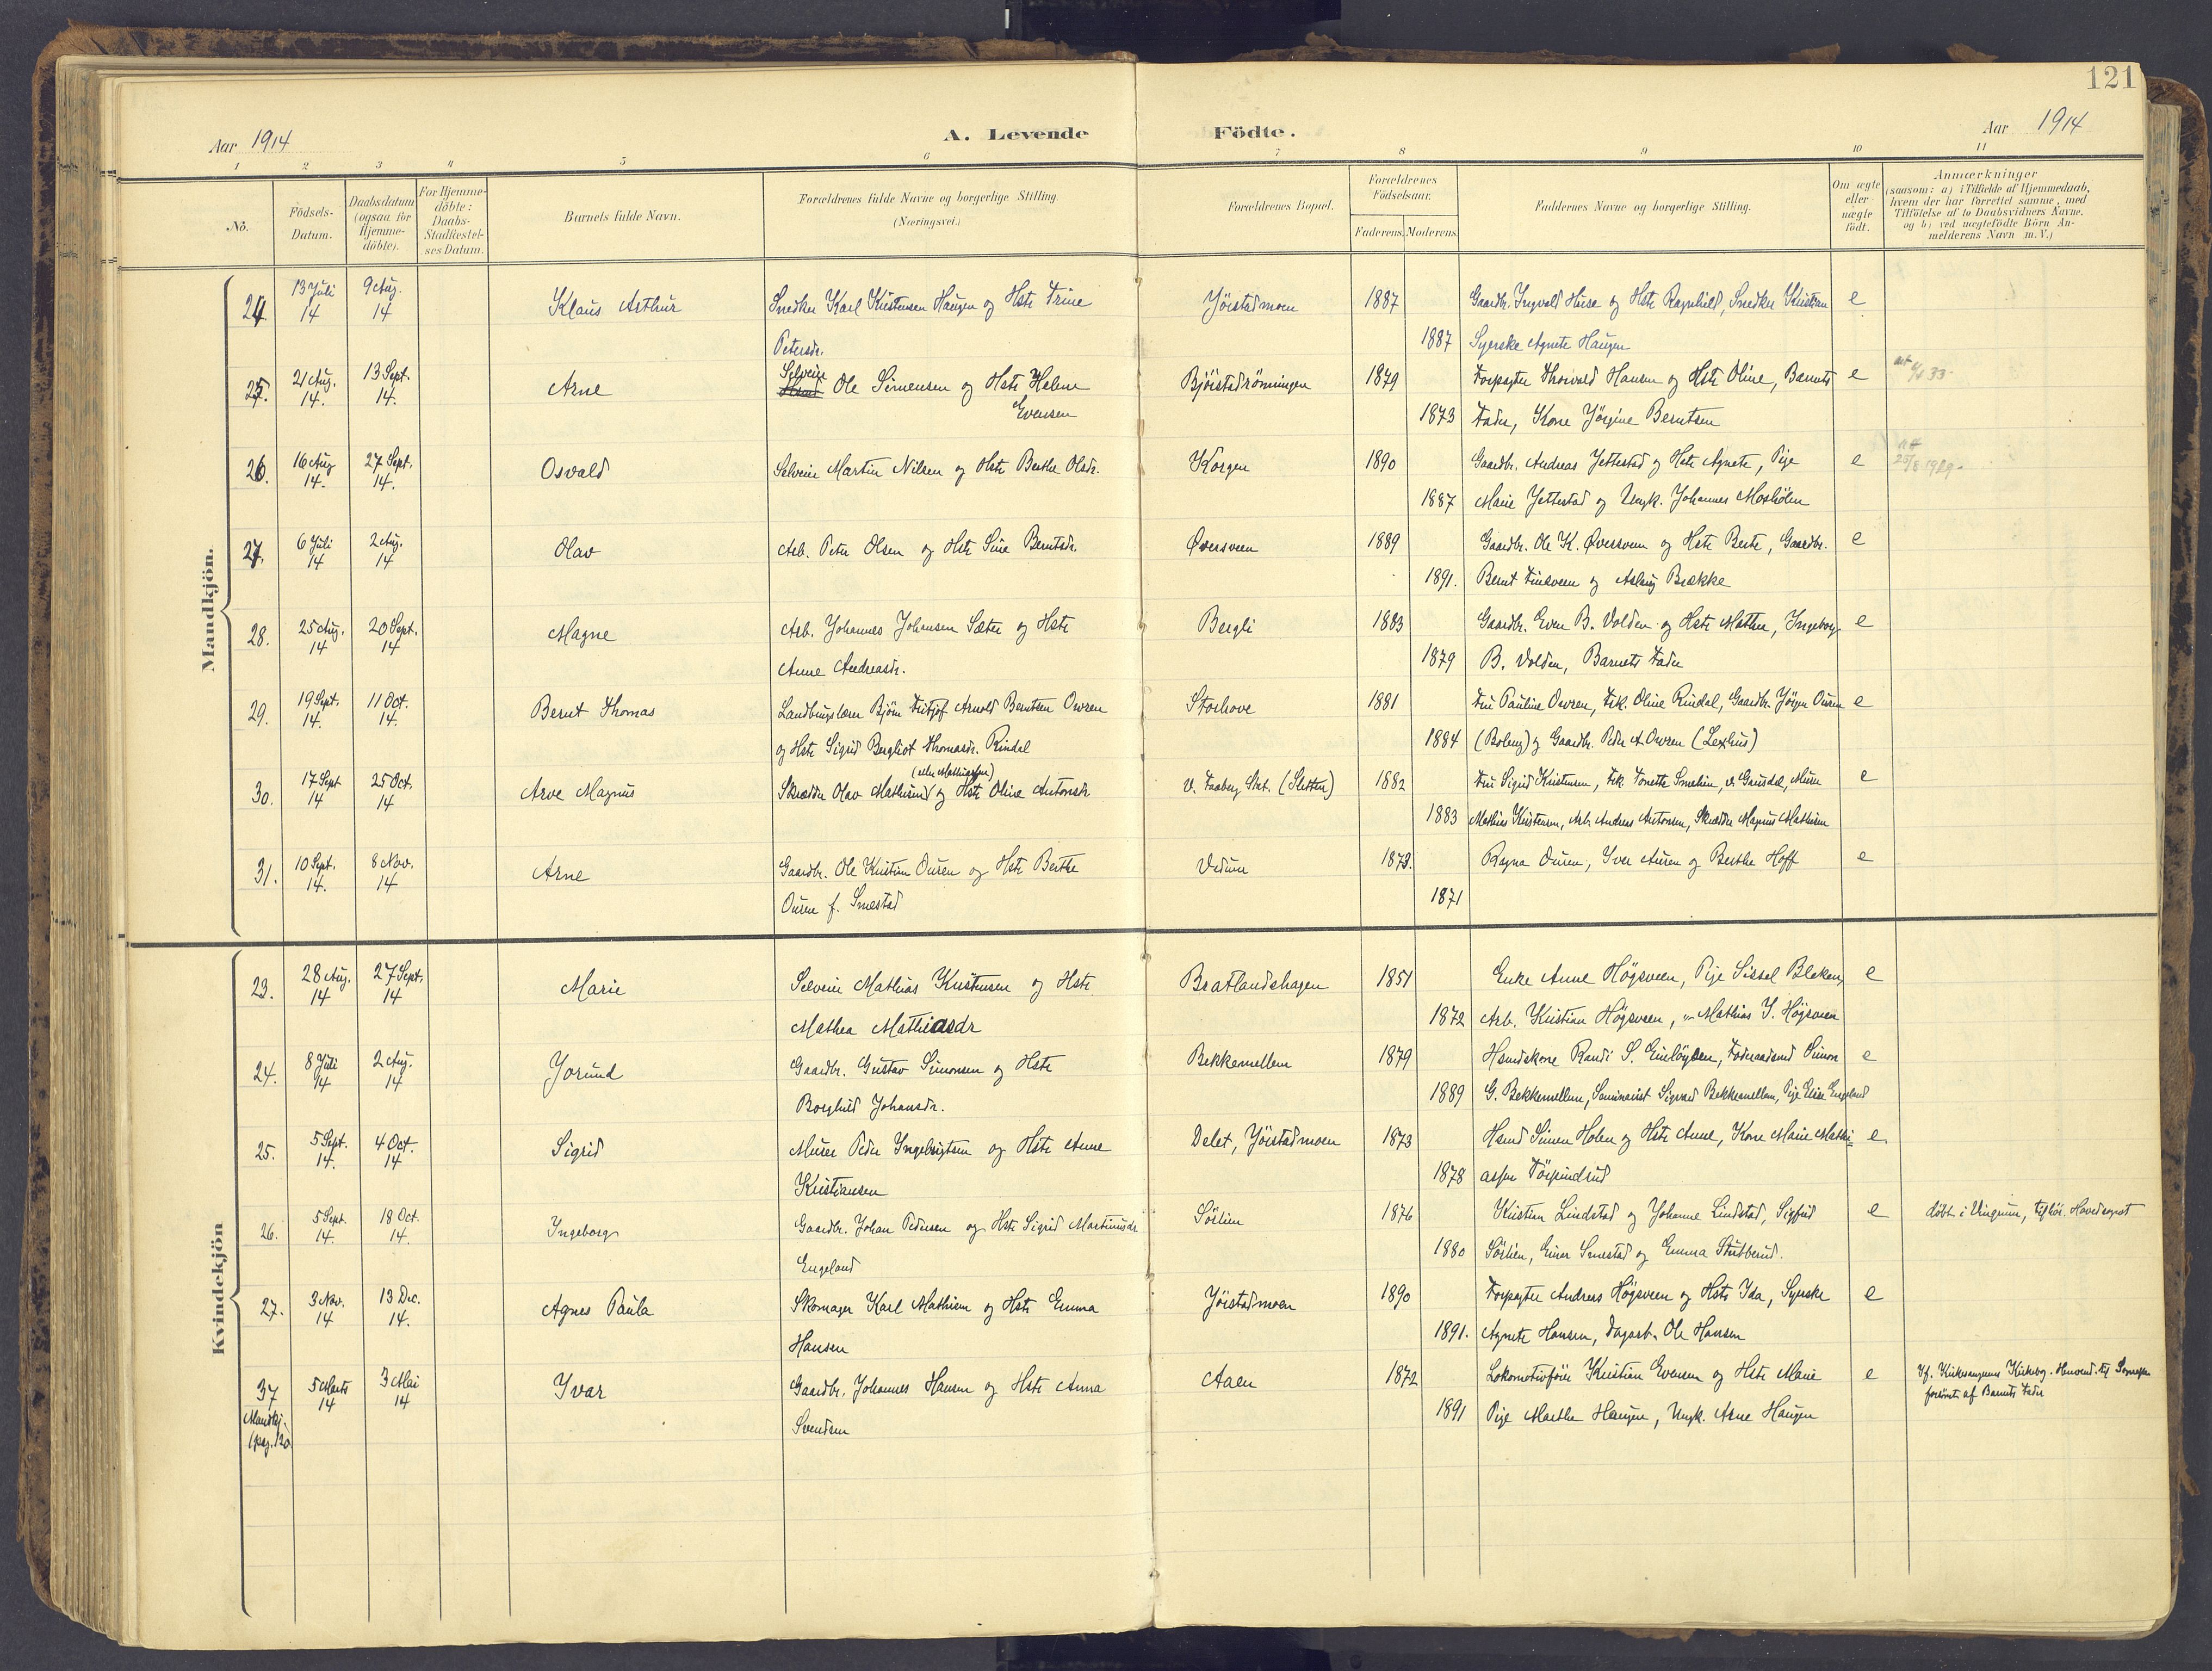 121
Aar 1914
A. Levende Födte.
Aar 1914
1 2 3 4 5 6 7 8 9 10 11
No.
Födsels-
Datum.
Daabsdatum
(ogsaa for
Hjemme-
döbte).
For Hjemme-
döbte:
Daabs-
Stadfæstel-
ses Datum.
Barnets fulde Navn.
Forældrenes fulde Navne og borgerlige Stilling.
(Næringsvei.)
Forældrenes Bopæl.
Forældrenes
Födselsaar.
Faderens. Moderens.
Faddernes Navne og borgerlige Stilling.
Om ægte
eller
uægte
födt.
Anmærkninger
(saasom: a) i Tilfælde af Hjemmedaab,
hvem der har forrettet samme, med
Tilföielse af to Daabsvidners Navne,
og b) ved uægtefödte Börn An-
melderens Navn m. V.)
Mandkjön.
24. 13 Juli 14 9 Aug. 14 Klaus Arthur Snedker Karl Kristensen Haugen og Hstr Trine Jöistadmoen 1887 Gaardbr. Ingvald Huse og Hstr Ragnhild, Snedker Kristian e
Petersdr. 1887 Syerske Agnete Haugen
25. 21 Aug. 14. 13 Sept. 14. Arne Selveier Ole Simensen og Hstr Helene Bjöistadrönningen 1879 Forpagter Thorvald Hansen og Hstr Oline, Barnets e
Evensen 1873 Fader, Kone Jörgine Berntsen
26. 16 Aug 14. 27 Sept. 14. Osvald Selveier Martin Nilsen og Hstr Berthe Olsdr. Korgen 1890 Gaardbr. Andreas Jettestad og Hstr Agnete, Pige e
1887 Marie Jettestad og Ungk. Johannes Moshölen
27. 6 Juli 14 2 Aug. 14 Olav Arb. Peter Olsen og Hstr Sine Berntsdr. Øversveen 1889 Gaardbr. Ole K. Øversveen og Hstr Berte, Gaardbr. e
1891. Bernt Finsveen og Aslaug Brække
28. 25 Aug. 14 20 Sept. 14 Magne Arb. Johannes Johansen Sæter og Hstr Bergli 1883 Gaardbr. Even B. Volden og Hstr Mathea, Ingeborg e
Anne Andreasdr. 1879 B. Volden, Barnets Fader
29. 19 Sept. 14. 11 Oct. 14. Bernt Thomas Landbrugslærer Björn Fritjof Arnold Berntsen Owren Storhove 1881 Fru Pauline Owren, Frk. Oline Rindal, Gaardbr. Jörgen Owren e
og Hstr Sigrid Bergliot Thomasdr. Rindal 1884 (Boleng) og Gaardbr. Peder A. Owren (Lexhus)
(eller Mathiassen)
30. 17 Sept 14 25 Oct. 14 Arve Magnus Skrædder Olav Mathisen og Hstr Oline Antonsdr. v. Faaberg Stat. (Sletten) 1882 Fru Sigrid Kristensen, Frk. Tonette Smehien, v. Gausdal, Murer e
1883 Mathias Kristensen, Arb. Andreas Antonsen, Skrædder Magnus Mathisen
31. 10 Sept. 14. 8 Nov. 14 Arne Gaardbr. Ole Kristian Ouren og Hstr Berthe Vedum 1873. Ragna Ouren, Iver Auren og Berthe Hoff e
Ouren f. Smestad 1871
Kvindekjön
23. 28 Aug. 14 27 Sept. 14 Marie Selveier Mathias Kristensen og Hstr Bratlandshagen 1851 Enke Anne Högsveen, Pige Sissel Bleken, e
Mathea Mathiasdr 1872 Arb. Kristian Högsveen, " Mathias J. Högsveen
24. 8 Juli 14 2 Aug. 14 Jorund Gaardbr. Gustav Simonsen og Hstr Bekkemellem 1879 Hsmdskone Randi S. Enelöydsen, Föderaadsmd Simon e
Borghild Johansdr. 1889 G. Bekkemellem, Seminarist Sigvard Bekkemellem, Pige Elise Engeland
25. 5 Sept. 14. 4 Oct. 14 Sigrid Murer Peder Ingebrigtsen og Hstr Anne Delet, Jöistadmoen 1873 Hsmd Simen Holen og Hstr Anne, Kone Marie Mathi= e
Kristiansen 1878 assen Torpindrud
26. 5 Sept. 14. 18 Oct. 14. Ingeborg Gaardbr. Johan Pedersen og Hstr Sigrid Martinusdr. Sörlien 1876 Kristian Lindstad og Johanne Lindstad, Sigfrid e döbt i Vingrum, tilhör. Hovedsognet
Engeland 1880 Sörlien, Einer Smestad og Emma Stutberud.
27. 3 Nov. 14 13 Dec. 14. Agnes Paula Skomager Karl Mathisen og Hstr Emma Jöistadmoen 1890 Forpagter Andreas Högsveen og Hstr Ida, Syerske e
Hansen 1891. Agnete Hansen, Dagarb. Ole Hansen
37 5 Marts 14 3 Mai 14 Ivar Gaardbr. Johannes Hansen og Hstr Anna Aaen 1872 Lokomotivförer Kristian Evensen og Hstr Marie e
Mandkj. (pag. 120 Svendsen 1891 Pige Marthe Haugen, Ungk. Arne Haugen
forsömt af Barnets Fader